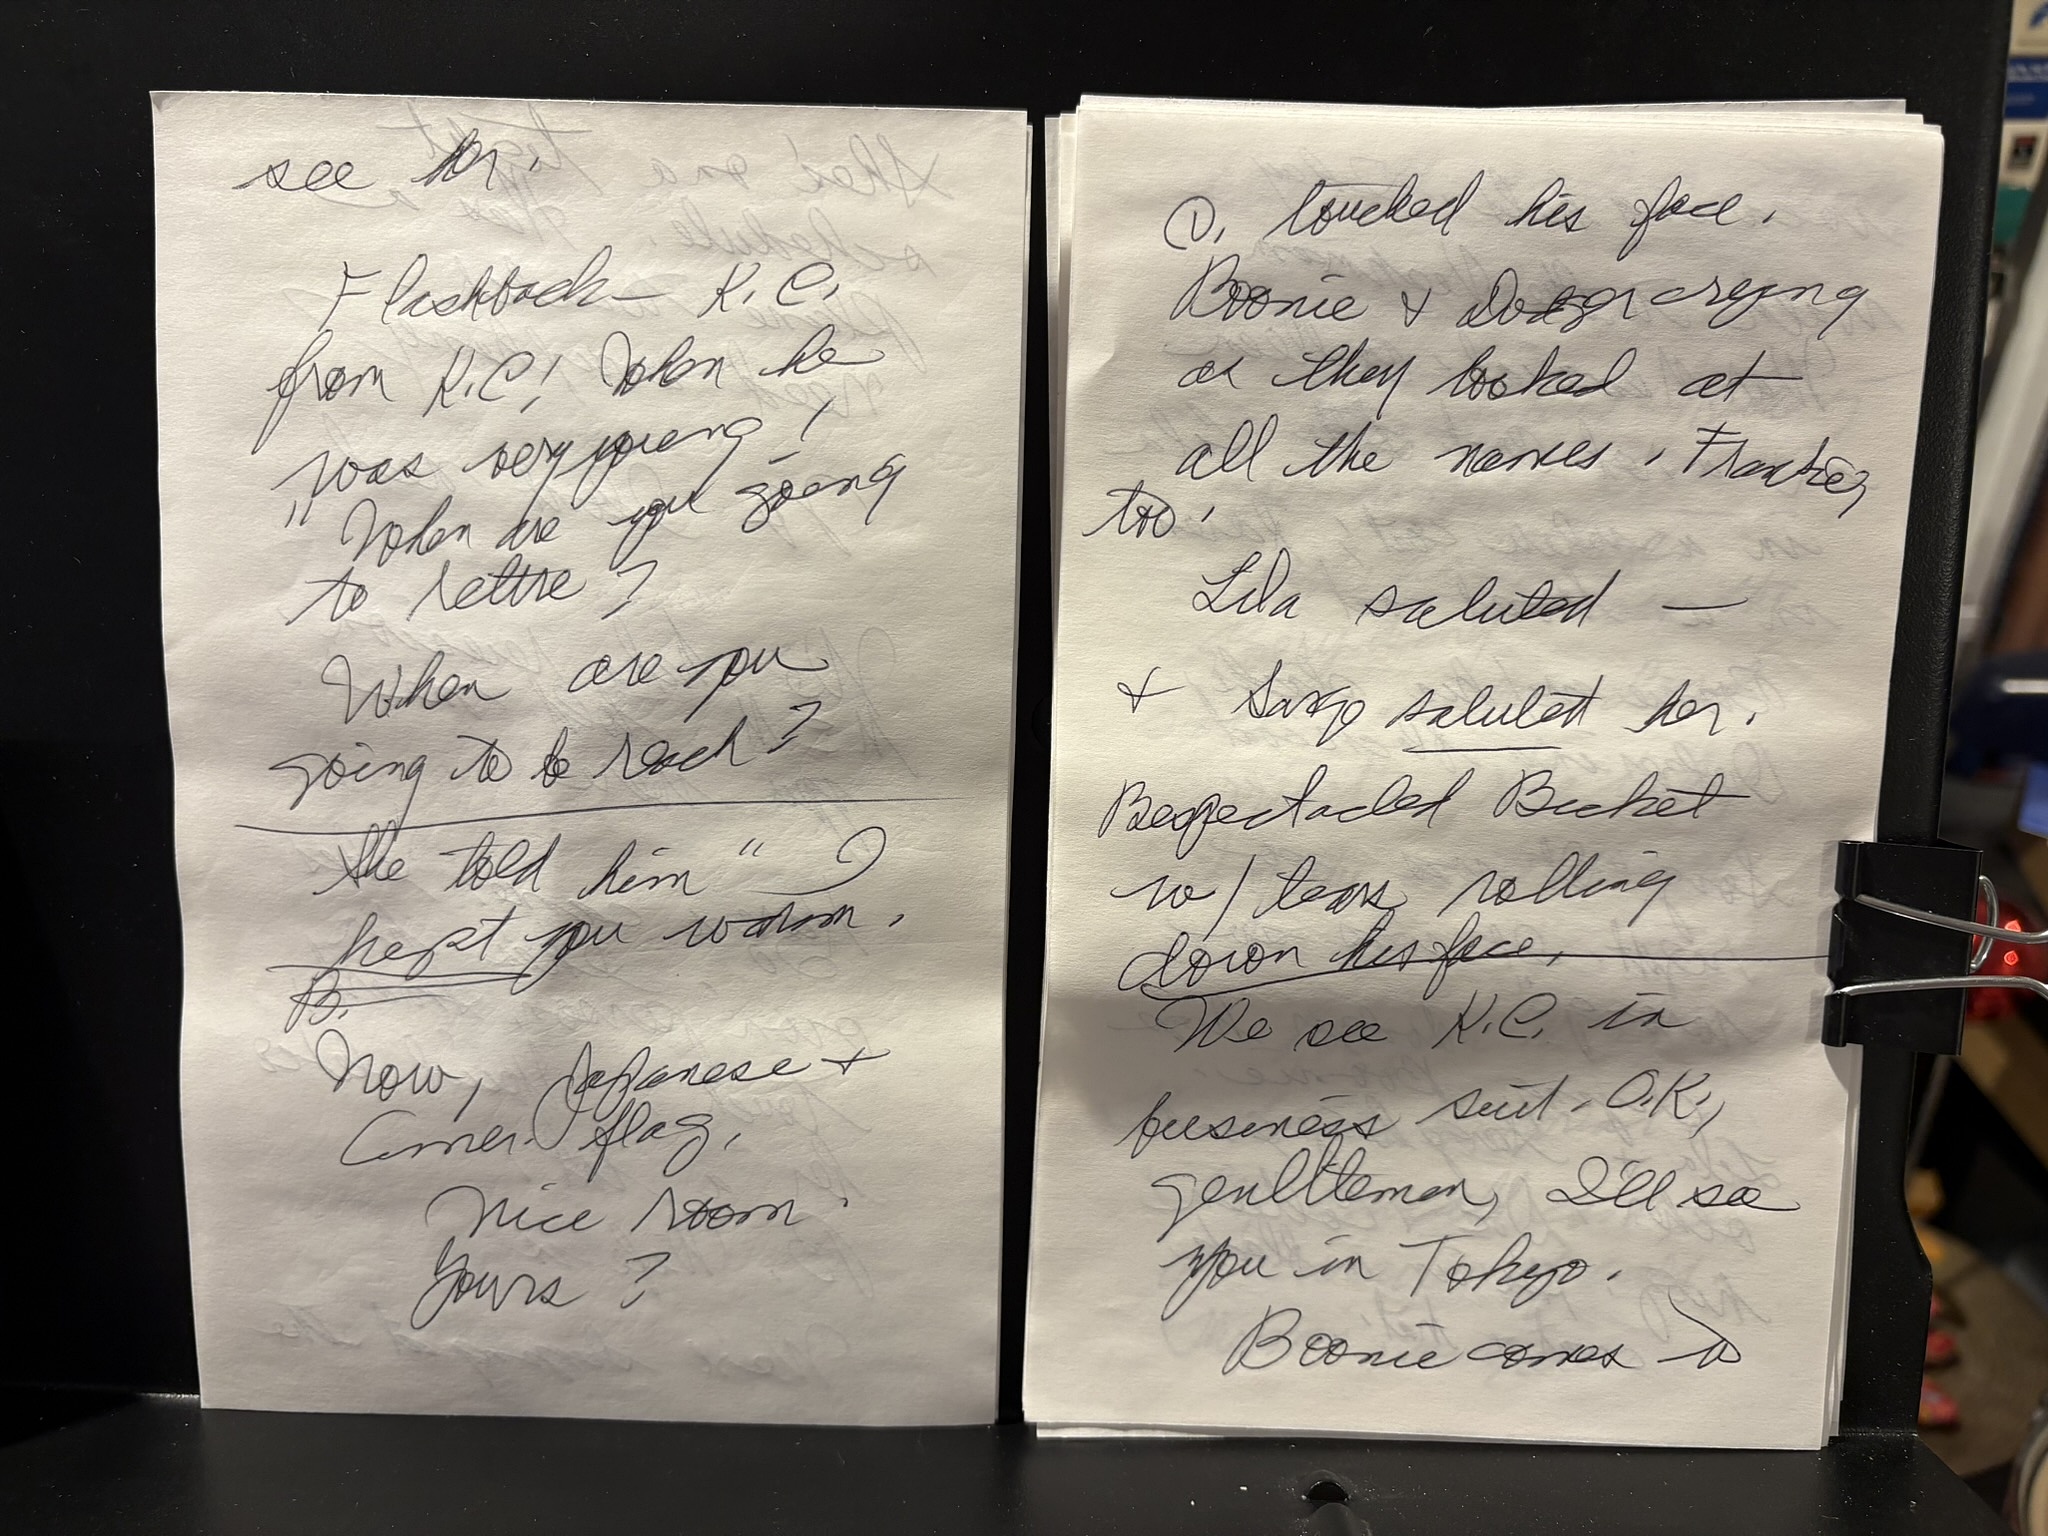 see her.
Flashback — K.C.
from K.C.! When he
was very young!
"When are you going
to retire?
When are you
going to be reach?
She told him "I
kept you warm.
B.
Now, Japanese +
Amer. flag.
Nice room.
Yours?
D. touched his face.
Boonie + Dodger crying
as they looked at
all the names. Frantzie,
too.
Lila saluted —
+ Sarge salutett her.
Bespectacled Bucket
w/ tears rolling
down his face.
We see K.C. in
business suit. O.K.,
gentlemen, I'll see
you in Tokyo.
Boonie comes to